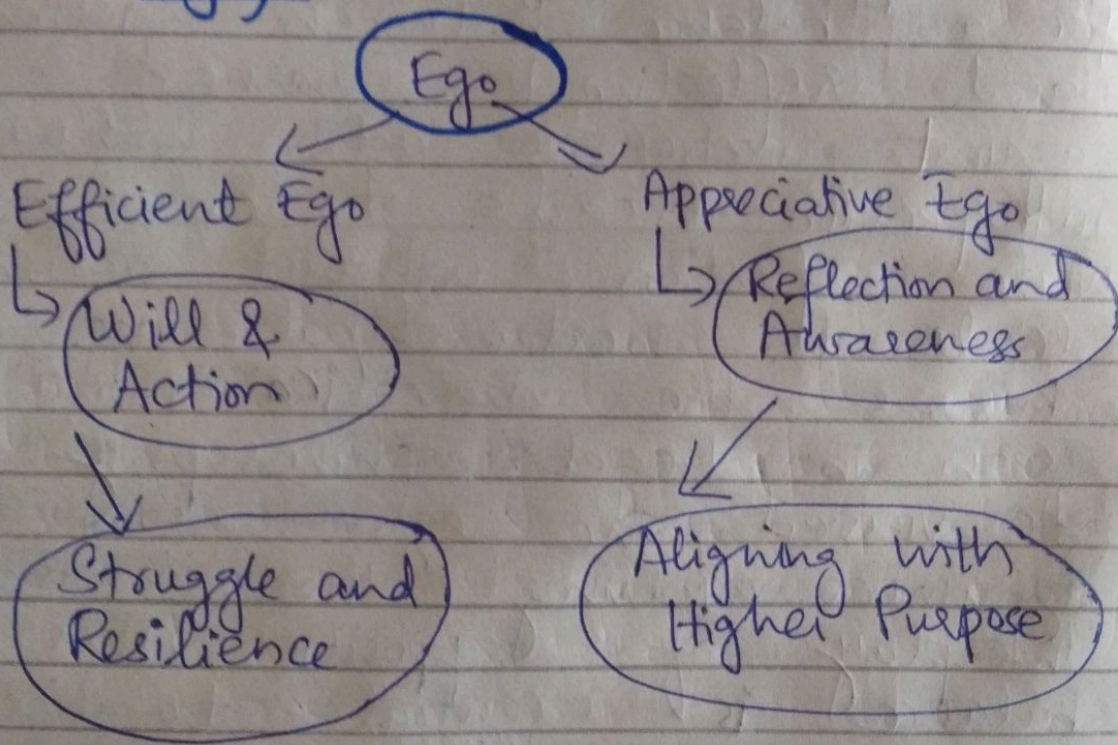 Ego
Efficient Ego
Will &
Action
Struggle and
Resilience
Appreciative Ego
Reflection and
Awareness
Aligning with
Higher Purpose